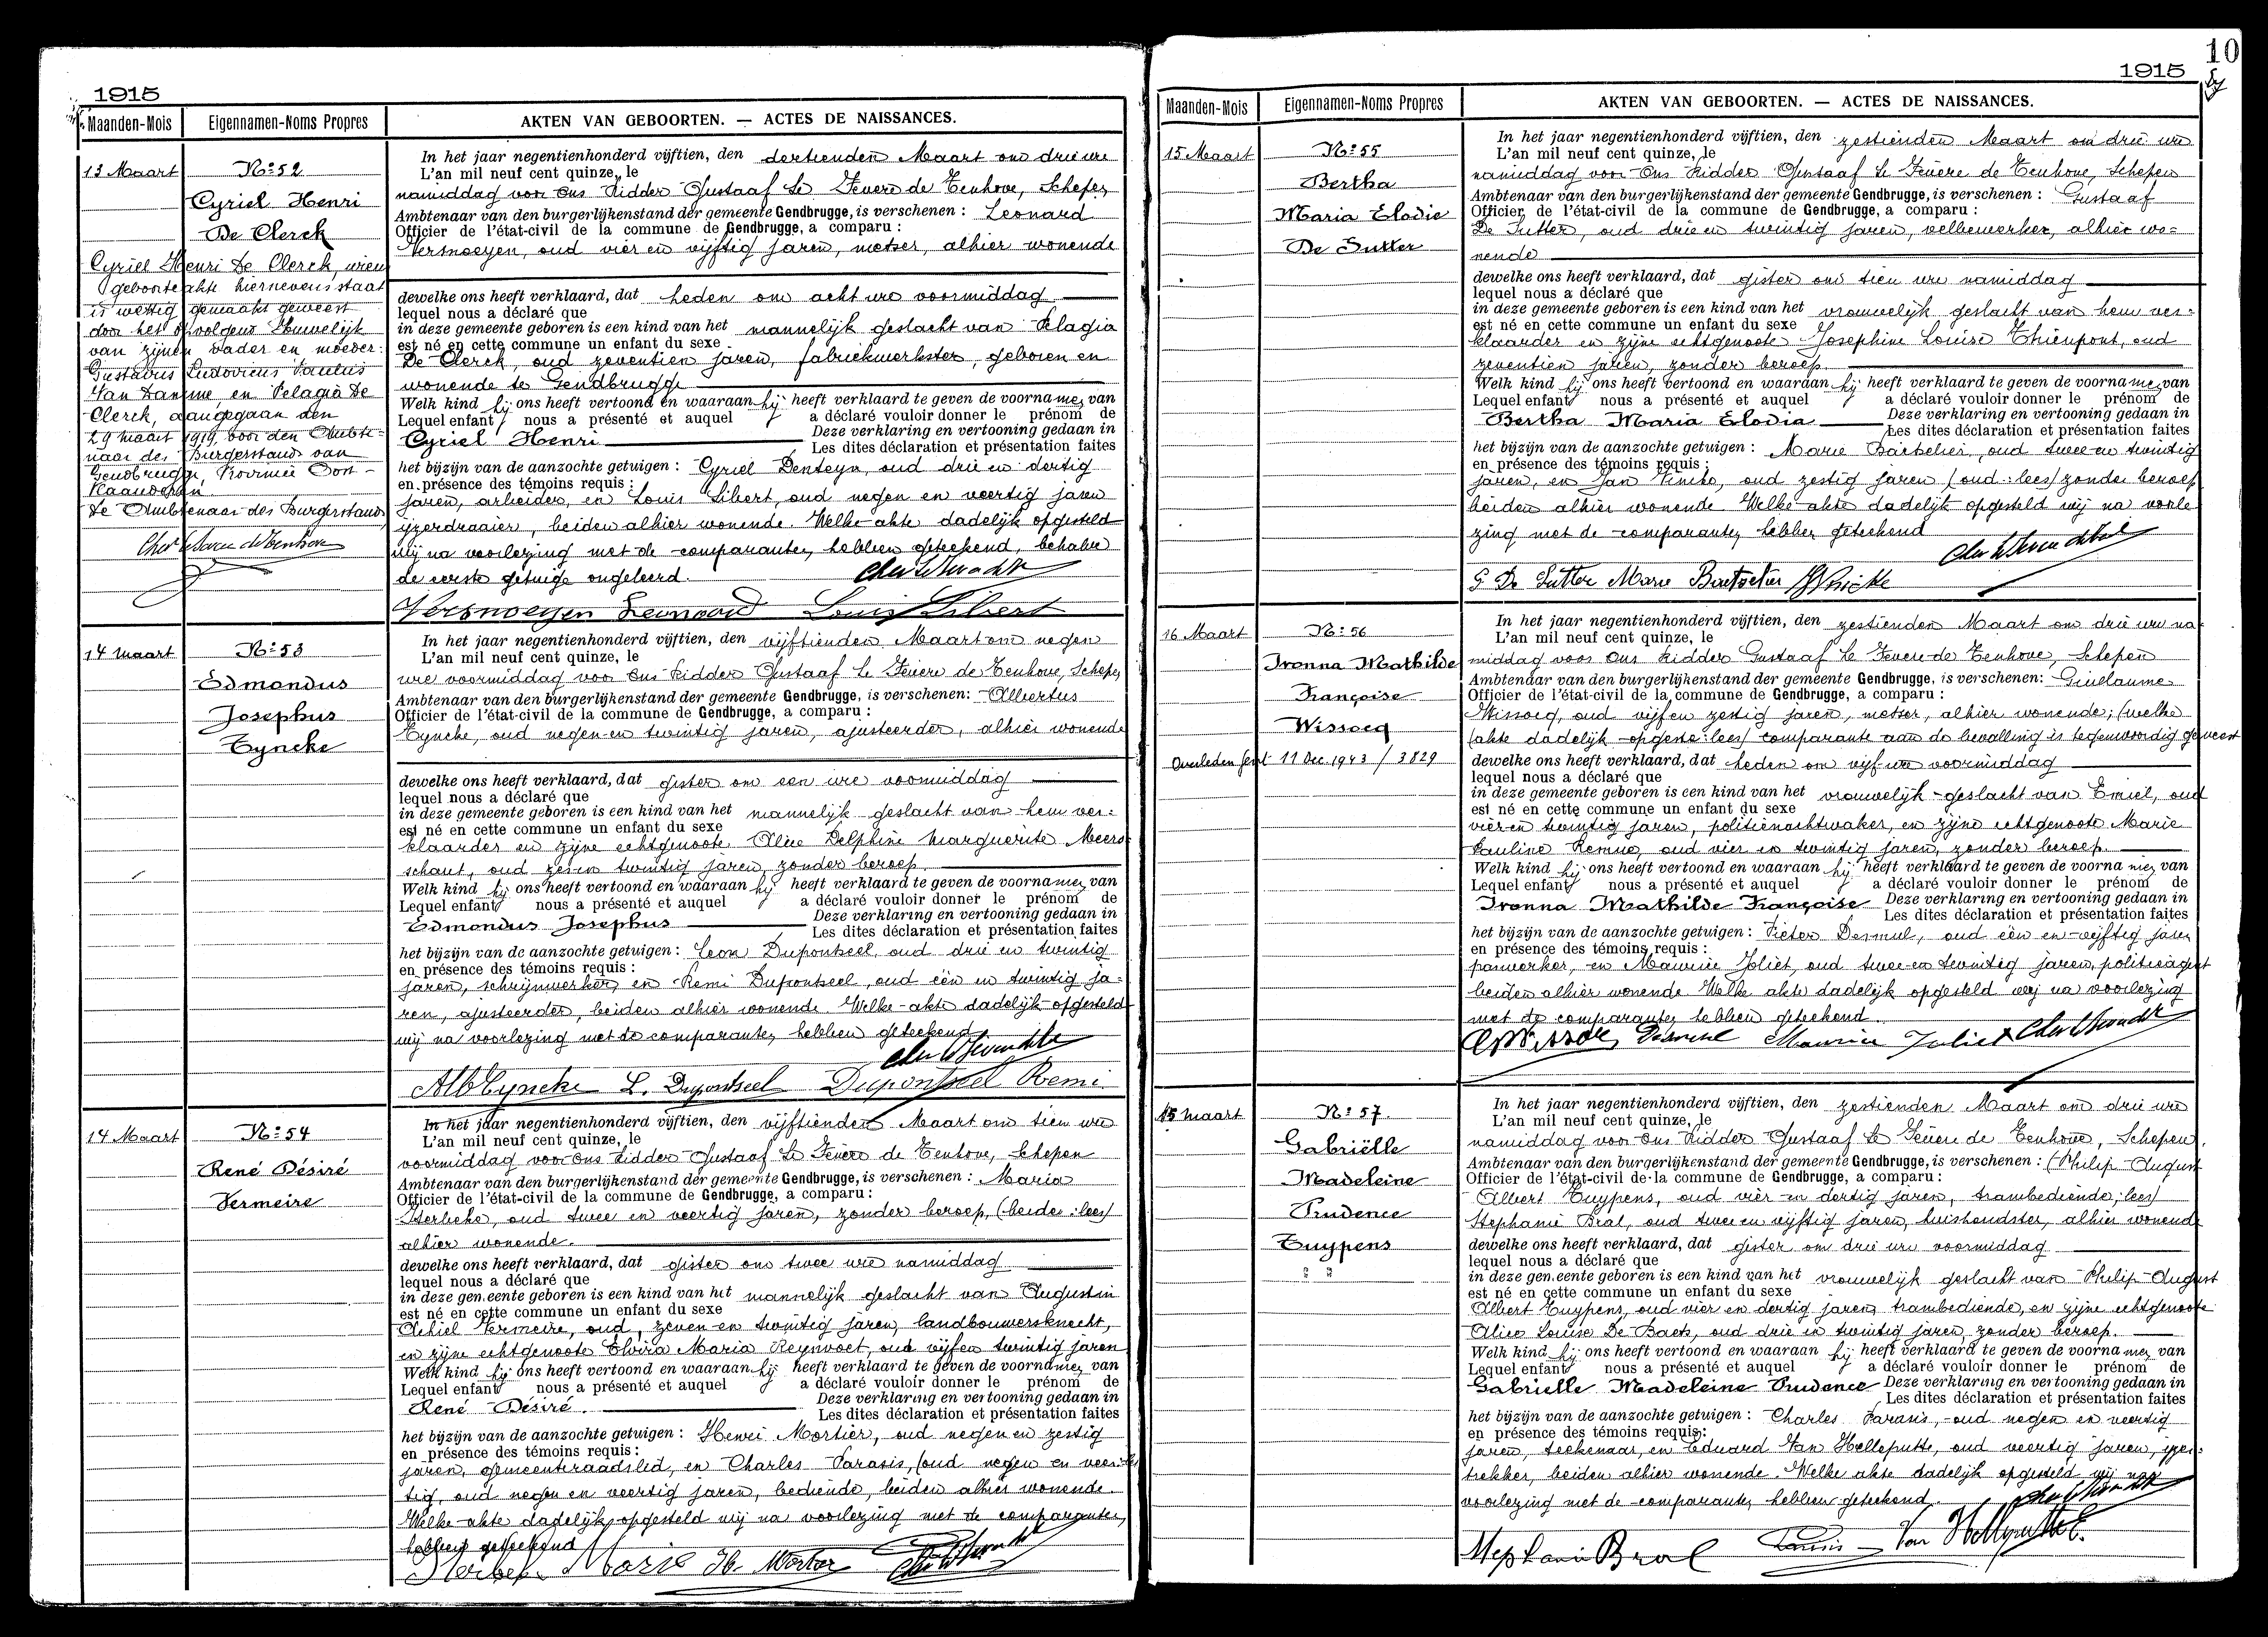 1915
Maanden-Mois
Eigennamen-Noms Propres
AKTEN VAN GEBOORTEN. — ACTES DE NAISSANCES.
13 Maart
N° 52
Cyriel Henri
De Clerck
Cyriel Henri De Clerck, wiens
geboorteakte hiernevens staat
is wettig gemaakt geweest
door het opvolgend huwelijk
van zijnen vader en moeder:
Gustavus Ludovicus Paulus
Van Damme en Pelagia De
Clerck, aangegaan den
29 maart 1919, voor den Ambte-
naar des Burgerstands van
Gendbrugge, Provincie Oost-
Vlaanderen.
De Ambtenaar des Burgerstands
In het jaar negentienhonderd vijftien, den dertienden Maart om drie ure
L'an mil neuf cent quinze, le
namiddag voor Ons Ridder Gustaaf Le Fevere de Tenhove, Schepen
Ambtenaar van den burgerlijkenstand der gemeente Gendbrugge, is verschenen : Leonard
Officier de l'état-civil de la commune de Gendbrugge, a comparu :
Versnoeyen, oud vier en vijftig jaren, metser, alhier wonende
dewelke ons heeft verklaard, dat heden om acht ure voormiddag
lequel nous a déclaré que
in deze gemeente geboren is een kind van het mannelijk geslacht van Pelagia
est né en cette commune un enfant du sexe
De Clerck, oud zeventien jaren, fabriekwerkster, geboren en
wonende te Gendbrugge
Welk kind hij ons heeft vertoond en waaraan hij heeft verklaard te geven de voornamen van
Lequel enfant nous a présenté et auquel a déclaré vouloir donner le prénom de
Cyriel Henri Deze verklaring en vertooning gedaan in
Les dites déclaration et présentation faites
het bijzijn van de aanzochte getuigen : Cyriel Denteyn, oud drie en dertig
en présence des témoins requis :
jaren, arbeider, en Louis Libert, oud negen en veertig jaren
ijzerdraaier, beiden alhier wonende. Welke akte dadelijk opgesteld
wij na voorlezing met de comparanten hebben geteekend, behalve
de eerste getuige ongeleerd.
Versnoeyen Leonard Louis Libert
14 maart
N° 53
Edmondus
Josephus
Tyncke
In het jaar negentienhonderd vijftien, den vijftienden Maart om negen
L'an mil neuf cent quinze, le
ure voormiddag voor Ons Ridder Gustaaf Le Fevere de Tenhove, Schepen
Ambtenaar van den burgerlijkenstand der gemeente Gendbrugge, is verschenen: Albertus
Officier de l'état-civil de la commune de Gendbrugge, a comparu :
Tyncke, oud negen en twintig jaren, ajusteerder, alhier wonende
dewelke ons heeft verklaard, dat gister om een ure voormiddag
lequel nous a déclaré que
in deze gemeente geboren is een kind van het mannelijk geslacht van hem ver-
est né en cette commune un enfant du sexe
klaarder en zijne echtgenoote Alice Delphine Marguerite Meers-
schaut, oud zes en twintig jaren, zonder beroep
Welk kind hij ons heeft vertoond en waaraan hij heeft verklaard te geven de voornamen van
Lequel enfant nous a présenté et auquel a déclaré vouloir donner le prénom de
Edmondus Josephus Deze verklaring en vertooning gedaan in
Les dites déclaration et présentation faites
het bijzijn van de aanzochte getuigen : Leon Dupontseel, oud drie en twintig
en présence des témoins requis :
jaren, schrijnwerker, en Remi Dupontseel, oud één en twintig ja-
ren, ajusteerder, beiden alhier wonende. Welke akte dadelijk opgesteld
wij na voorlezing met de comparanten hebben geteekend
Alb Tyncke L. Dupontseel Dupontseel Remi
14 Maart
N° 54
René Désiré
Vermeire
In het jaar negentienhonderd vijftien, den vijftienden Maart om tien ure
L'an mil neuf cent quinze, le
voormiddag voor Ons Ridder Gustaaf Le Fevere de Tenhove, Schepen
Ambtenaar van den burgerlijkenstand der gemeente Gendbrugge, is verschenen : Maria
Officier de l'état-civil de la commune de Gendbrugge, a comparu :
Sterbeke, oud twee en veertig jaren, zonder beroep, (beide: lees)
alhier wonende.
dewelke ons heeft verklaard, dat gister om twee ure namiddag
lequel nous a déclaré que
in deze gemeente geboren is een kind van het mannelijk geslacht van Augustin
est né en cette commune un enfant du sexe
Achiel Vermeire, oud, zeven en twintig jaren, landbouwersknecht,
en zijne echtgenoote Elvira Maria Reynvoet, oud vijf en twintig jaren
Welk kind hij ons heeft vertoond en waaraan hij heeft verklaard te geven de voornamen van
Lequel enfant nous a présenté et auquel a déclaré vouloir donner le prénom de
René Désiré. Deze verklaring en vertooning gedaan in
Les dites déclaration et présentation faites
het bijzijn van de aanzochte getuigen : Henri Mortier, oud negen en zestig
en présence des témoins requis :
jaren, gemeenteraadslid, en Charles Parasis, (oud negen en veer-
tig, oud negen en veertig jaren, bediende, beiden alhier wonende.
Welke akte dadelijk opgesteld wij na voorlezing met de comparanten
hebben geteekend
Marie H. Mortier
10
1915
Maanden-Mois
Eigennamen-Noms Propres
AKTEN VAN GEBOORTEN. — ACTES DE NAISSANCES.
15 Maart
N° 55
Bertha
Maria Elodie
De Sutter
In het jaar negentienhonderd vijftien, den zestienden Maart om drie ure
L'an mil neuf cent quinze, le
namiddag voor Ons Ridder Gustaaf Le Fevere de Tenhove, Schepen
Ambtenaar van den burgerlijkenstand der gemeente Gendbrugge, is verschenen : Gustaaf
Officier de l'état-civil de la commune de Gendbrugge, a comparu :
De Sutter, oud drie en twintig jaren, velbewerker, alhier wo-
nende
dewelke ons heeft verklaard, dat gister om tien ure namiddag
lequel nous a déclaré que
in deze gemeente geboren is een kind van het vrouwelijk geslacht van hem ver-
est né en cette commune un enfant du sexe
klaarder en zijne echtgenoote Josephine Louise Thienpont, oud
zeventien jaren, zonder beroep.
Welk kind hij ons heeft vertoond en waaraan hij heeft verklaard te geven de voornamen van
Lequel enfant nous a présenté et auquel a déclaré vouloir donner le prénom de
Bertha Maria Elodia Deze verklaring en vertooning gedaan in
Les dites déclaration et présentation faites
het bijzijn van de aanzochte getuigen : Marie Baetselier, oud twee en twintig
en présence des témoins requis :
jaren, en Jan oud zestig jaren (oud: lees) zonder beroep
beiden alhier wonende. Welke akte dadelijk opgesteld wij na voorle
zing met de comparanten hebben geteekend
G De Sutter Marie Baetselier
16 Maart
N° 56
Ivonna Mathilde
Françoise
Wissocq
Overleden Gent 11 Dec. 1943 / 3829
In het jaar negentienhonderd vijftien, den zestienden Maart om drie ure na
L'an mil neuf cent quinze, le
middag voor Ons Ridder Gustaaf Le Fevere de Tenhove, Schepen
Ambtenaar van den burgerlijkenstand der gemeente Gendbrugge, is verschenen: Guillaume
Officier de l'état-civil de la commune de Gendbrugge, a comparu :
Wissocq, oud vijf en zestig jaren, metser, alhier wonende; (welke
(akte dadelijk opgeste: lees) comparante aan de bevalling is tegenwoordig geweest
dewelke ons heeft verklaard, dat heden om vijf ure voormiddag
lequel nous a déclaré que
in deze gemeente geboren is een kind van het vrouwelijk geslacht van Emiel, oud
est né en cette commune un enfant du sexe
vier en twintig jaren, politienachtwaker, en zijne echtgenoote Marie
Pauline Remue, oud vier en twintig jaren, zonder beroep.
Welk kind hij ons heeft vertoond en waaraan hij heeft verklaard te geven de voornamen van
Lequel enfant nous a présenté et auquel a déclaré vouloir donner le prénom de
Ivonna Mathilde Françoise Deze verklaring en vertooning gedaan in
Les dites déclaration et présentation faites
het bijzijn van de aanzochte getuigen : Pieter Desmul, oud één en vijftig jaren
en présence des témoins requis :
paswerker, en Maurice Joliet, oud twee en twintig jaren, politieagent
beiden alhier wonende. Welke akte dadelijk opgesteld wij na voorlezing
met de comparanten hebben geteekend.
Desmul Maurice Joliet
15 maart
N° 57.
Gabriëlle
Madeleine
Prudence
Tuypens
In het jaar negentienhonderd vijftien, den zestienden Maart om drie ure
L'an mil neuf cent quinze, le
namiddag voor Ons Ridder Gustaaf Le Fevere de Tenhove, Schepen,
Ambtenaar van den burgerlijkenstand der gemeente Gendbrugge, is verschenen : (Philip-August
Officier de l'état-civil de la commune de Gendbrugge, a comparu :
Albert Tuypens, oud vier en dertig jaren, trambediende; lees)
Stephanie Bral, oud twee en vijftig jaren, huishoudster, alhier wonende
dewelke ons heeft verklaard, dat gister om drie ure voormiddag
lequel nous a déclaré que
in deze gemeente geboren is een kind van het vrouwelijk geslacht van Philip-August
est né en cette commune un enfant du sexe
Albert Tuypens, oud vier en dertig jaren, trambediende, en zijne echtgenoote
Alice Louise De Baets, oud drie en twintig jaren, zonder beroep.
Welk kind hij ons heeft vertoond en waaraan hij heeft verklaard te geven de voornamen van
Lequel enfant nous a présenté et auquel a déclaré vouloir donner le prénom de
Gabrielle Madeleine Prudence Deze verklaring en vertooning gedaan in
Les dites déclaration et présentation faites
het bijzijn van de aanzochte getuigen : Charles Parasis, oud negen en veertig
en présence des témoins requis:
jaren, teekenaar, en Eduard Van Helleputte, oud veertig jaren, ijzer-
trekker, beiden alhier wonende. Welke akte dadelijk opgesteld wij na
voorlezing met de comparanten hebben geteekend.
Stephanie Bral Parasis Van Helleputte E.